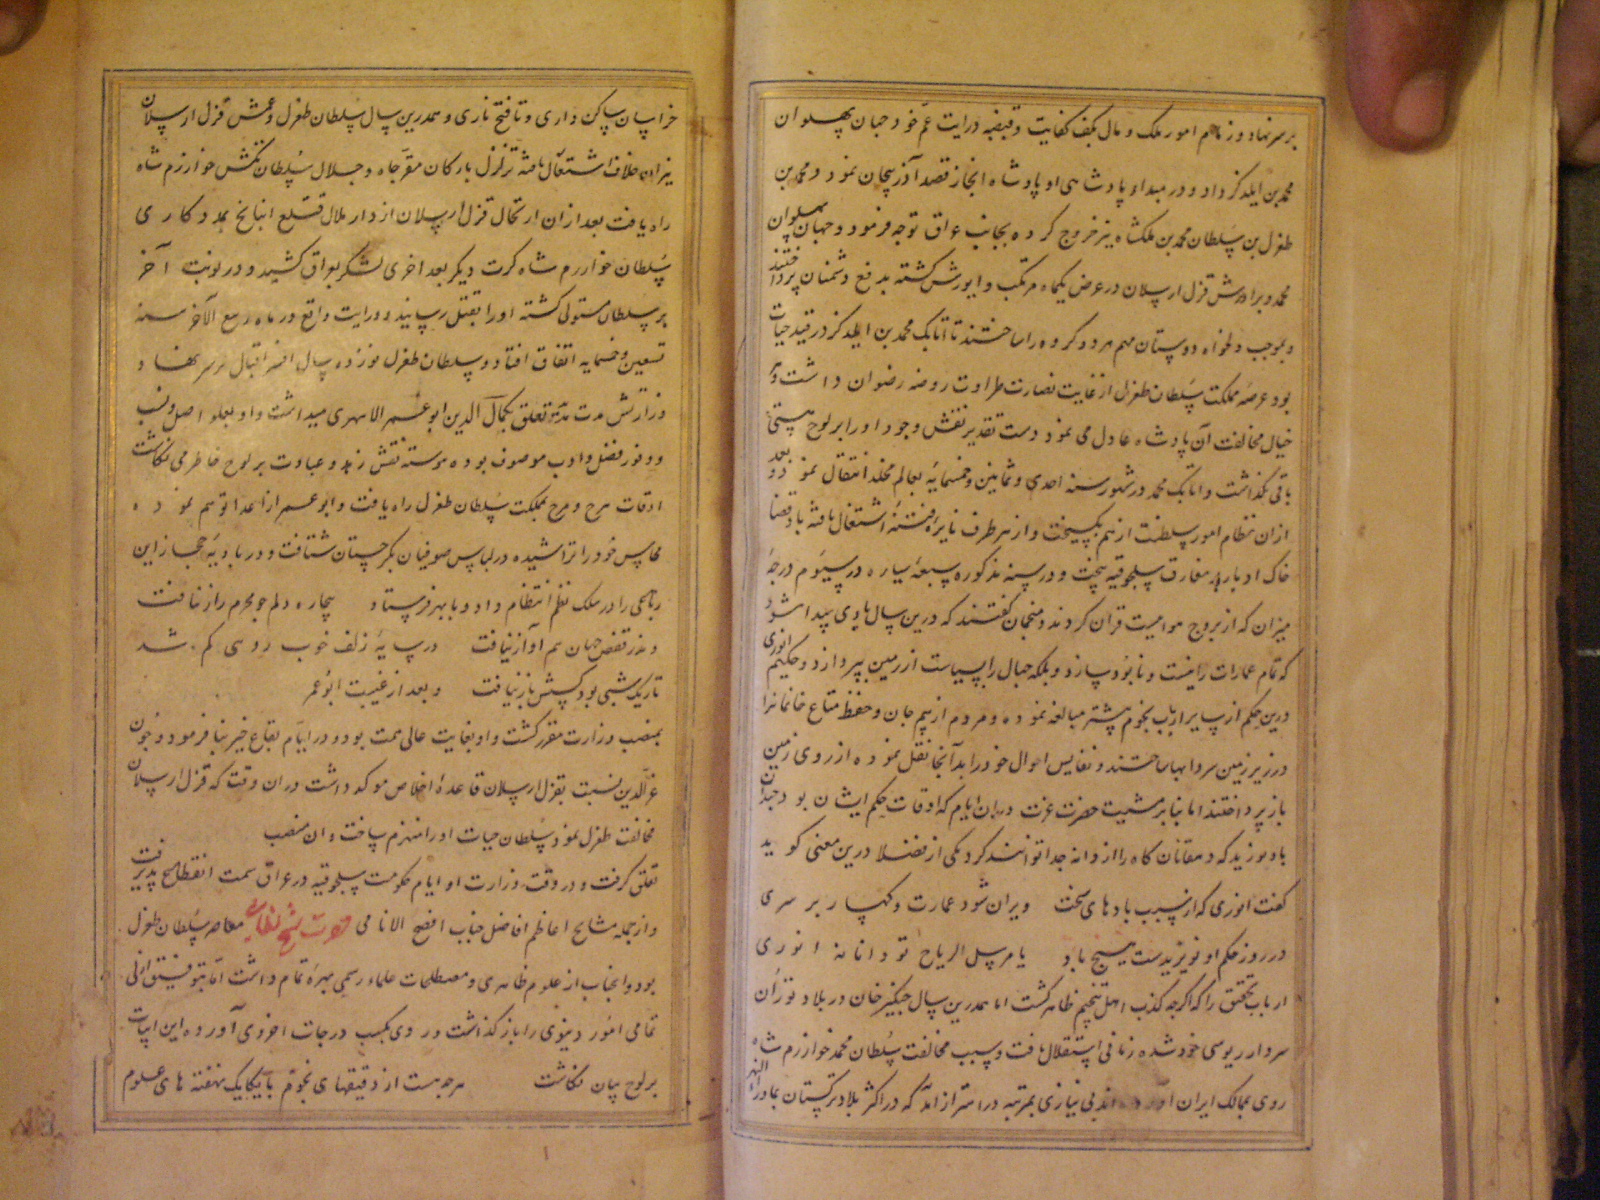 بر سر نهاد و زمام امور ملک و مال بکف کفایت و قبضه درایت عم خود جهان پهلوان
محمد بن ایلدکز داد و در مبداء او پادشاهی او پادشاه انجاز قصد آذربیجان نمود و محمد بن
طغرل بن سلطان محمد بن ملکشاه نیز خروج کرده بجانب عراق توجه فرمود و جهان پهلوان
محمد و برادرش قزل ارسلان در عرض یکماه مرتکب و ایورش گشته بدفع دشمنان پرداختند
و بموجب دلخواه دوستان مهم هر دو گروه را ساختند تا اتابک محمد بن ایلدکز در قید حیات
بود عرصه مملکت سلطان طغرل از غایت نضارت طراوت روضه رضوان داشت و
خیال مخالفت آن پادشاه عادل می نمود دست تقدیر نقش وجود او را بر لوح هستی
باقی نگذاشت و اتابک محمد در شهور سنه احدی و ثمانین و خمسمایه بعالم مخلد انتقال نمود و بعد
از ان نظام امور سلطنت از هم بگسیخت و از هر طرف نایره فتنه اشتغال یافته باد قضا
خاک ادبار بر مفارق سلجوقیه بیخت و در سنه مذکوره سبعه سیاره در سیوم درجه
میزان که از بروج هواییست قران کردند و منجمان گفتند که درین سال بادی پیدا شود
که تمام عمارات را نیست و نابود سازد و بلکه جبال را بسیاست از زمین بپردازد و حکیم انوری
درین حکم از سایر ارباب نجوم بیشتر مبالغه نموده و مردم از بیم جان و حفظ متاع خانمانرا
در زیر زمین سردابها ساختند و نفایس اموال خود را بدآنجا نقل نموده از روی زمین
باز پرداختند اما بنابر مشیت حضرت عزت در ان ایام که اوقات حکم ایشان بود چندان
باد نوزید که دهقانان کاه را از دانه جدا توانند کرد یکی از فضلا درین معنی گوید
گفت انوری که از سبب بادهای سخت ویران شود عمارت و کهسار بر سری
در روز حکم او نوزیدست هیچ باد یا مرسل الریاح تو دانی نه انوری
ارباب تحقیق را که اگرچه کذب اهل تنجیم ظاهر گشت اما همدرین سال چنکیز خان در بلاد توران
سردار ریوسی خود شده زمانی استقلال یافت و بسبب مخالفت سلطان محمد خوارزم شاه
روی بممالک ایران آورده بی نیازی بمرتبه در اهتزاز آمد که در اکثر بلاد ترکستان بماوراء النهر
خراسان ساکن داری و تا فتح ناری و همدرین سال سلطان طغرل و عمش قزل ارسلان
نیران خلاف اشتعال یافته تزلزل بارکان مقر جاه و جلال سلطان تکش خوارزم شاه
راه یافت بعد ازان ارتحال قزل ارسلان از دار ملال قتلع اینانج بمددکاری
سلطان خوارزم شاه کرت دیگر بعد اخری لشکر بعراق کشید و در نوبت آخر
بر سلطان مستولی گشته او را بقتل رسانید و روایت واقع در ماه ربیع الآخر سنه
تسعین و خمسمایه اتفاق افتاد و سلطان طغرل نوزده سال افسر اقبال بر سر نهاد و
وزارتش مدت مدید تعلق بکمال الدین ابو عمر الابهری میداشت و او بعلو اصل و نسب
و وفور فضل و ادب موصوف بوده پیوسته نقش زهد و عبادت بر لوح خاطر می نگاشت
اوقات هرج و مرج بمملکت سلطان طغرل راه یافت و ابو عمر از اعدا توهم نموده
محاسن خود را تراشیده در لباس صوفیان بکرجستان شتافت و در بادیه حجاز این
رباعی را در سلک نظم انتظام داد و بابهر فرستاد بیچاره دلم چو محرم راز نیافت
و ندر قفص جهان هم آواز نیافت در سایه زلف خوب رویی گم شد
تاریک شبی بود کسش باز نیافت و بعد از غیبت ابو عمر
بمنصب وزارت مقرر گشت و او بغایت عالی همت بود و در ایام بقاع خیر بنا فرمود و چون
عزالدین نسبت بقزل ارسلان قاعده اخلاص موکد داشت در ان وقت که قزل ارسلان
مخالفت طغرل نمود سلطان حیات او را منهزم ساخت و ان منصب
تعلق گرفت و در وقت وزارت او ایام حکومت سلجوقیه در عراق سمت انقطاع پذیرفت
و از جمله مشایخ اعاظم افاضل جناب افصح الانامی حضرت شیخ نظامی معاصر سلطان طغرل
بود و انجناب از علوم ظاهری و مصطلحات علماء رسمی بهره تمام داشت اما بتوفیق ازلی
تمامی امور دنیوی را باز گذاشت و روی بکسب درجات اخروی آورده این ابیات
بر لوح بیان نگاشت هرچه هست از دقیقهای نجوم با یکایک نهفته های علوم